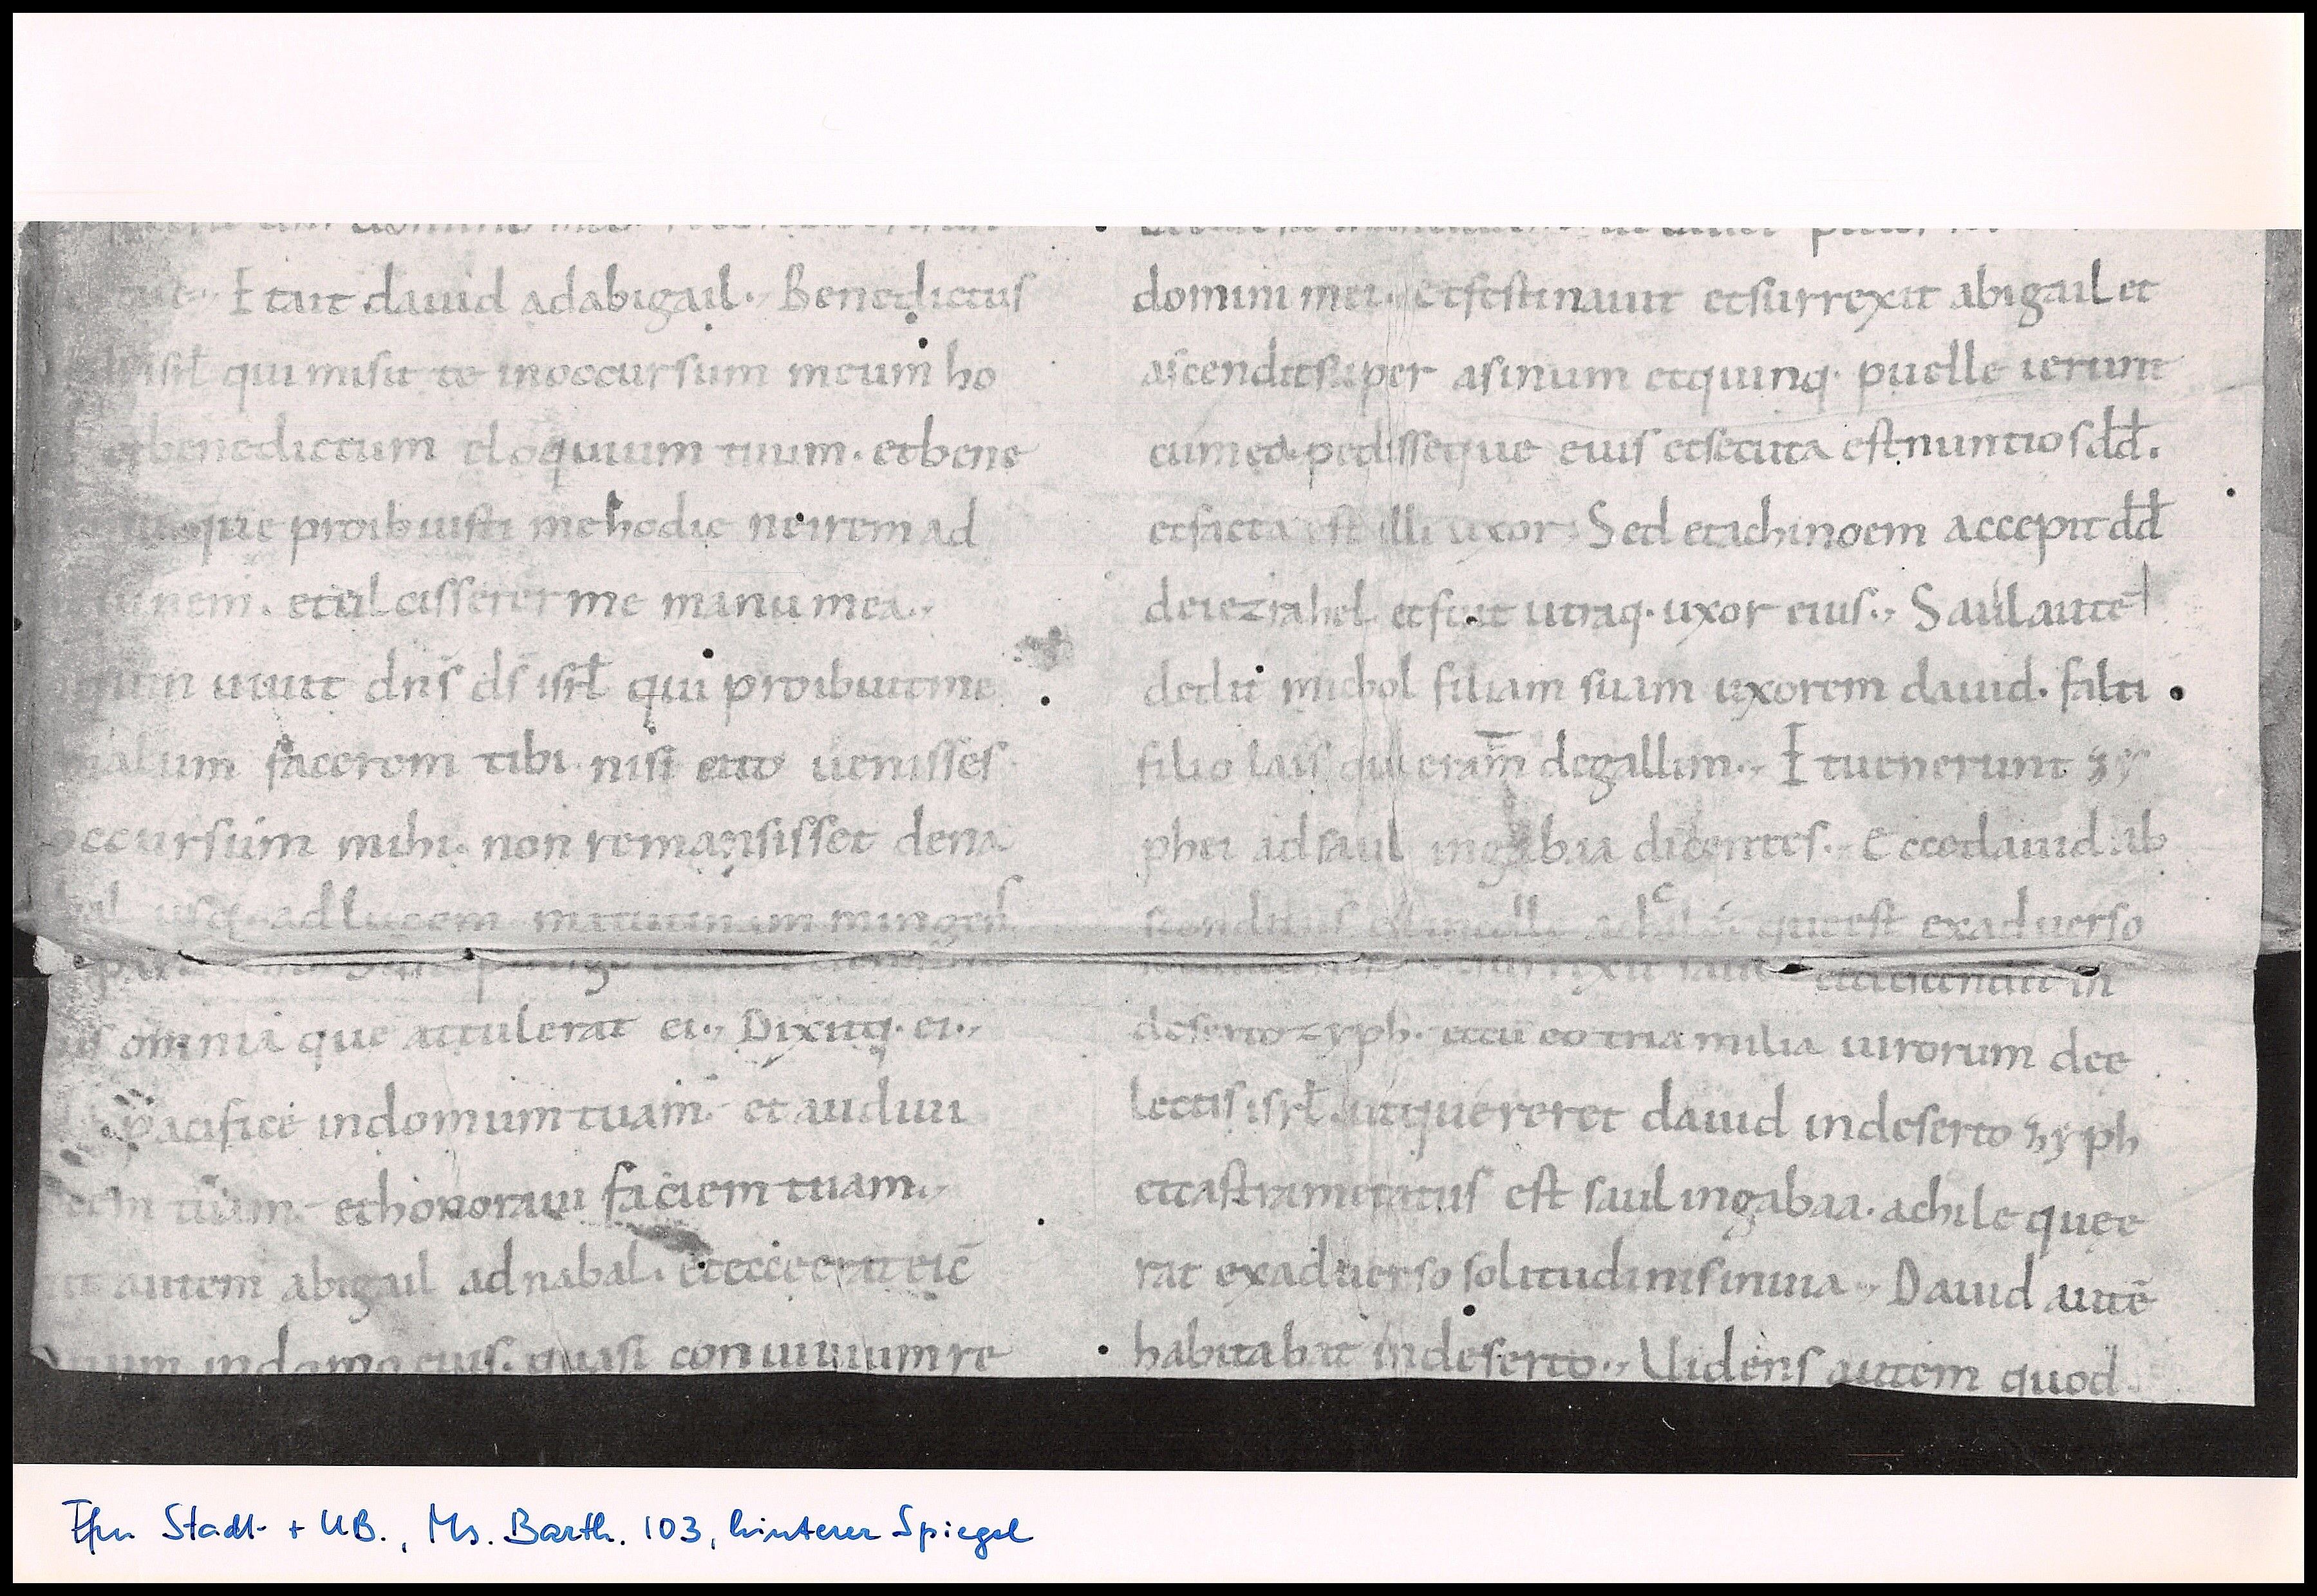 tue. Et ait dauid ad abigail. Benedictus
isrł qui misit te in occursum meum ho
et benedictum eloquium tuum. et bene
que proibuisti me hodie ne irem ad
nem. et ulcisserer me manu mea.
uiuit dn̄s ds̄ isrł qui proibuit me
malum facerem tibi nisi cito uenisses
occursum mihi. non remansisset de na
bal usq. ad lucem matutinam mingens
omnia que attulerat ei. Dixitq. ei.
pacifice in domum tuam. et audiui
tuam. et honoraui faciem tuam.
autem abigail ad nabal. et ecce erat ei c̄
in domo eius. quasi conuiuium re
domini mei. et festinauit et surrexit abigail et
ascendit super asinum et quinq. puelle ierunt
cum ea pedisseque eius et secuta est nuntios dd̄.
et facta est illi uxor. Sed et achinoem accepit dd̄
de iezrahel et fuit utraq. uxor eius. Saul autē
dedit michol filiam suam uxorem dauid. falti
filio lais qui erat de gallim. Et uenerunt zy
phei ad saul in gabaa dicentes. Ecce dauid ab
sconditus est in colle achile que est ex aduerso
et surrexit saul et descendit in
deserto zyph. et cū eo tria milia uirorum de e
lectis isrł. ut quereret dauid in deserto zyph
et castrametatus est saul in gabaa. achile que e
rat ex aduerso solitudinis in uia. Dauid autē
habitabat in deserto. Uidens autem quod
Ffm Stadt- + UB., Ms. Barth. 103, hinterer Spiegel